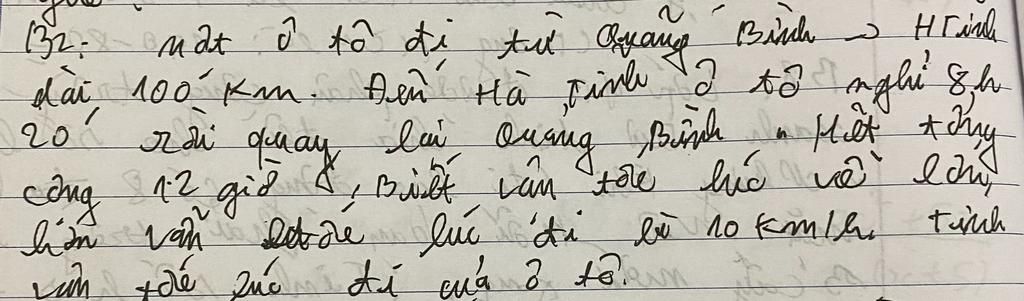 B2: một ô tô đi từ Quảng Bình → H Tĩnh
dài 100 Km. Đến Hà Tĩnh ô tô nghỉ 8h
20' rồi quay lại Quảng Bình. Hết tổng
cộng 12 giờ, Biết vân tốc lúc về lớn
hơn vẫn tốc lúc đi là 10 Km/h. Tính
vân tốc lúc đi của ô tô.